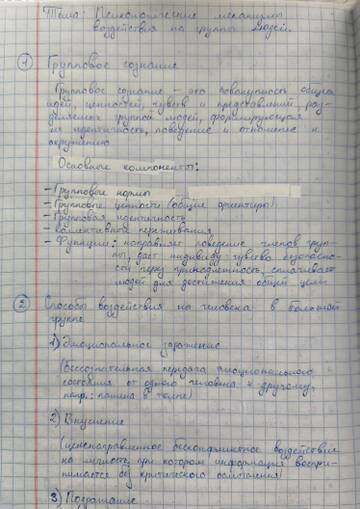 Тема: Психологические механизмы
воздействия на группы людей.
1 Групповое сознание
Групповое сознание - это совокупность общих
идей, ценностей, чувств и представлений, раз-
деляемых группой людей, формирующая
их идентичность, поведение и отношение к
окружению
Основные компоненты:
- Групповые нормы
- Групповые ценности (общие ориентиры)
- Групповая идентичность
- Коллективные переживания
- Функции: направляет поведение членов груп-
пы, даёт индивиду чувство безопасно-
сти через принадлежность, сплачивает
людей для достижения общей цели
2 Способы воздействия на человека в большой
группе
1) Эмоциональное заражение
(бессознательная передача эмоционального
состояния от одного человека к другому,
напр.: паника в толпе)
2) Внушение
(целенаправленное бесконфликтное воздействие
на личность, при котором информация воспри-
нимается без критического осмысления)
3) Подражание